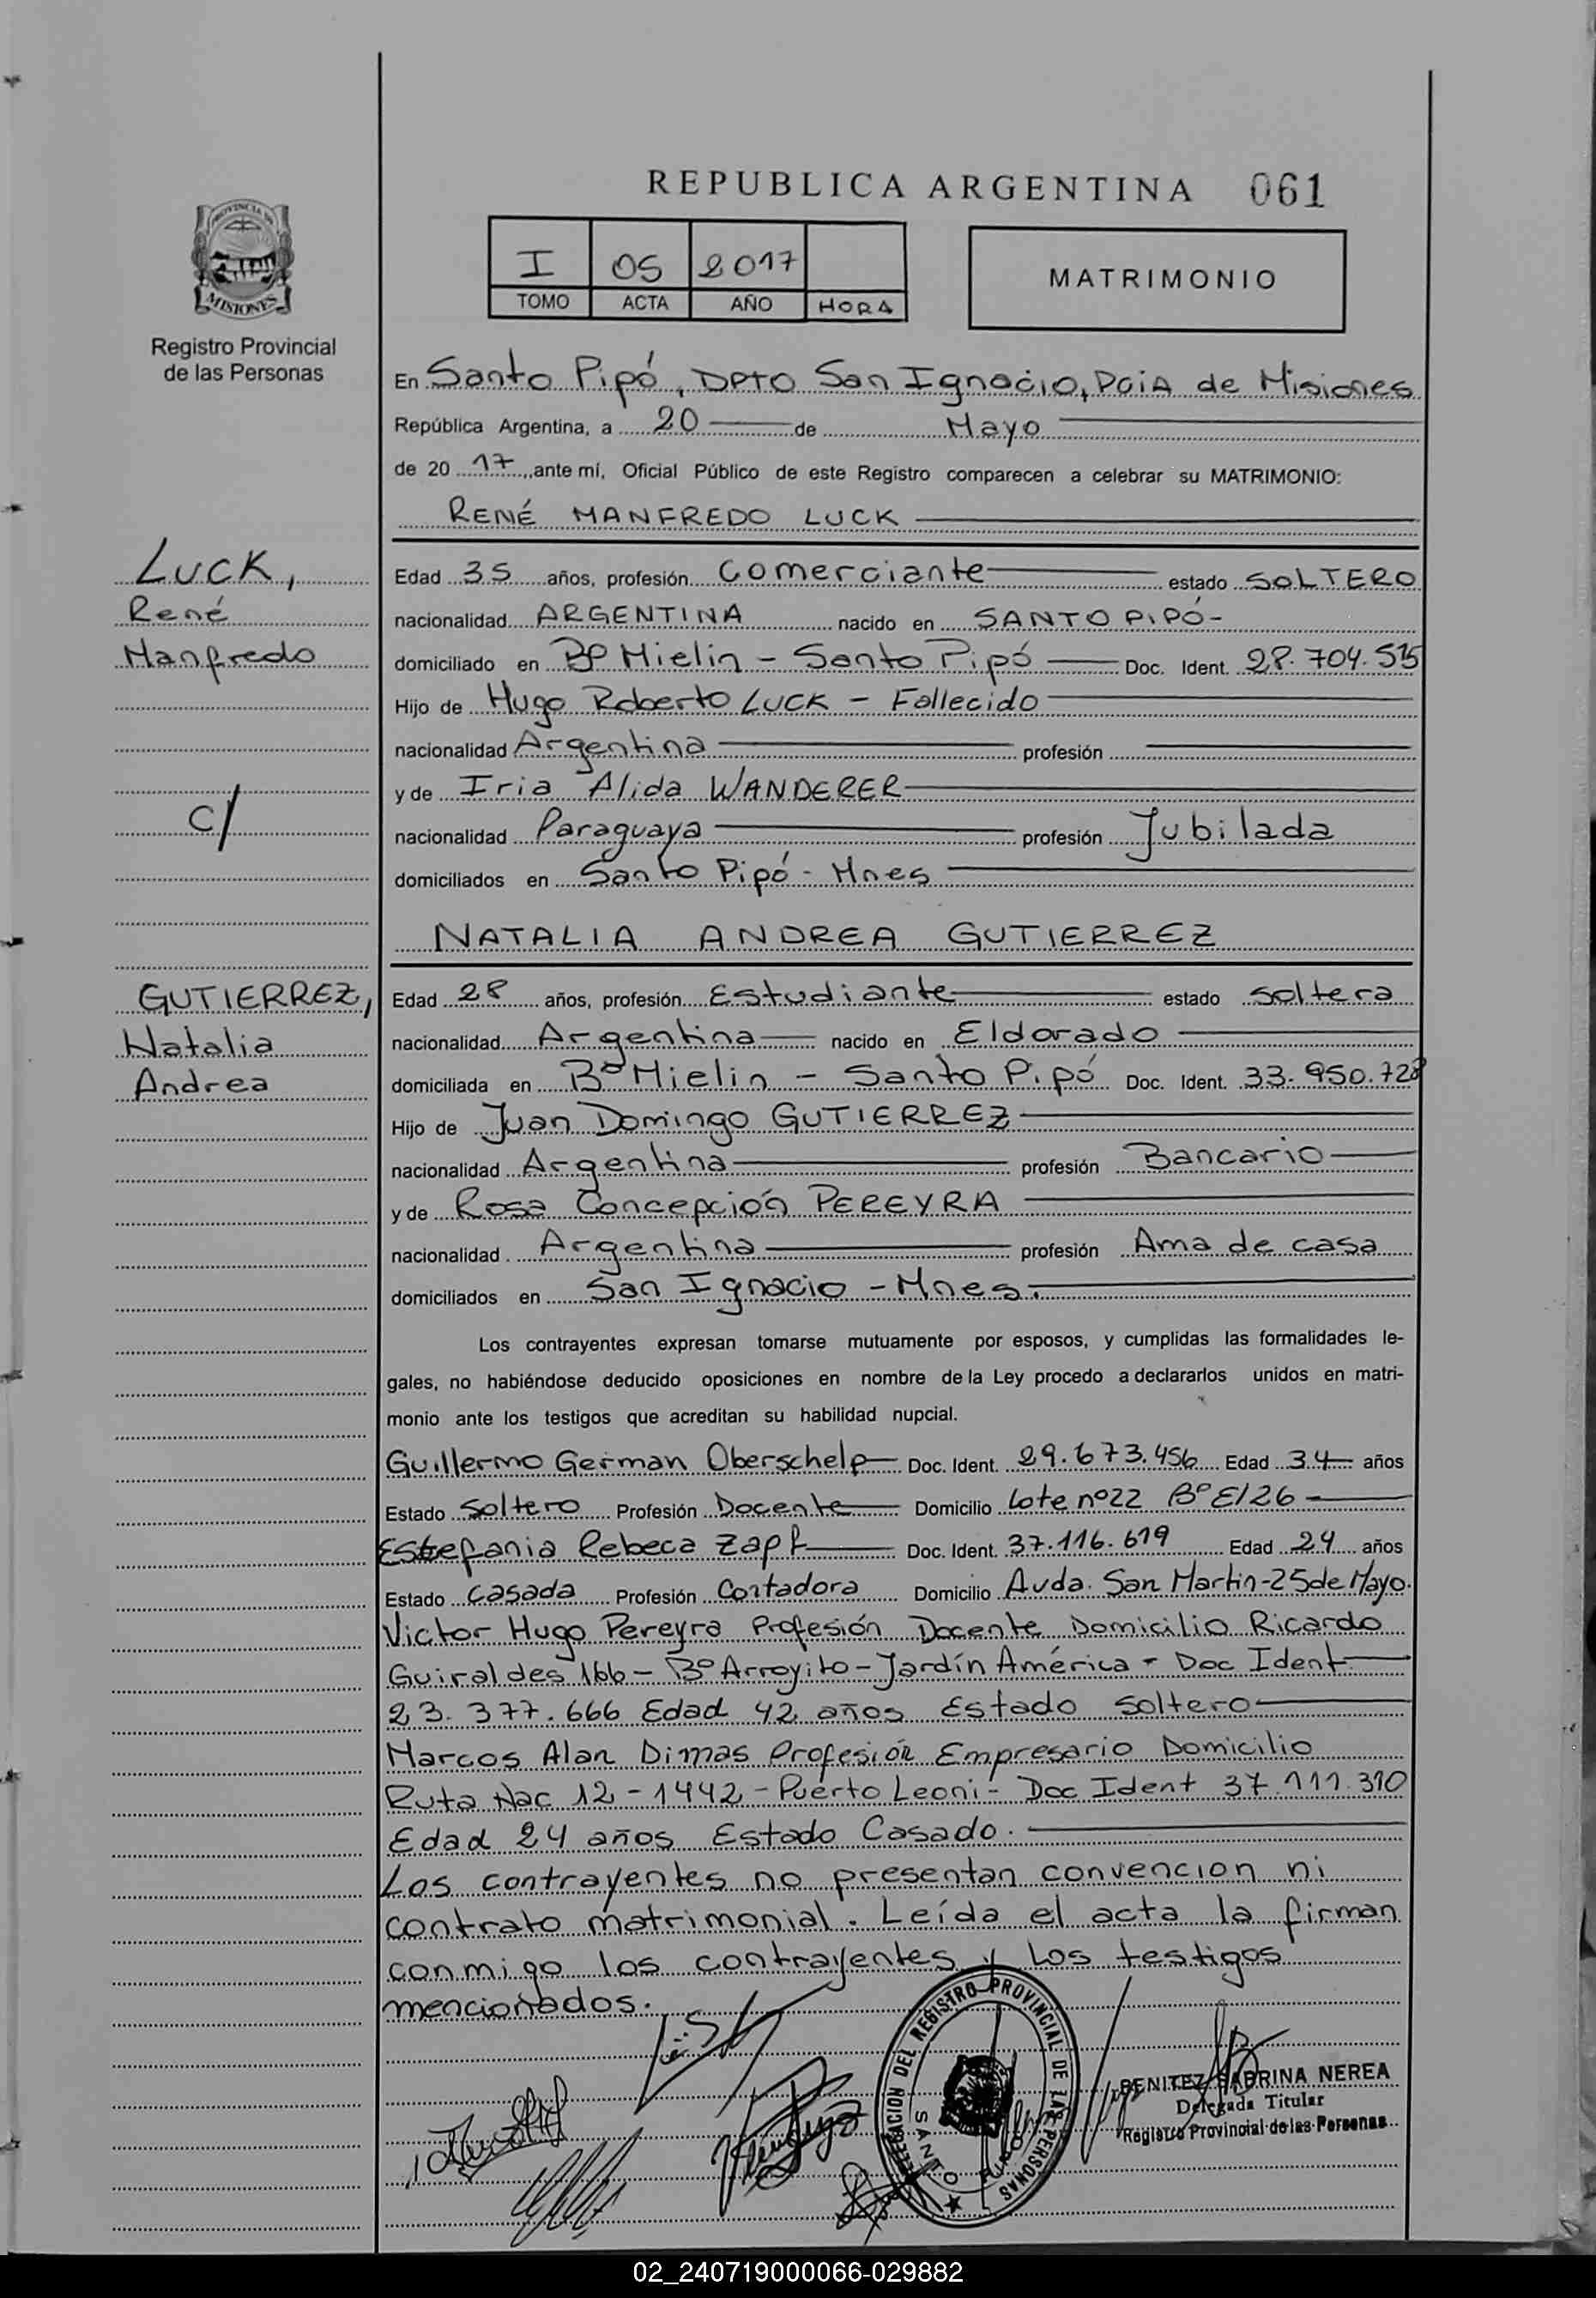 REPUBLICA ARGENTINA 061
PROVINCIA DE
MISIONES
Registro Provincial
de las Personas
I 05 2017
TOMO ACTA AÑO HORA
MATRIMONIO
En Santo Pipó, DPTO San Ignacio, PCIA de Misiones
República Argentina, a 20 de Mayo
de 20 17, ante mí, Oficial Público de este Registro comparecen a celebrar su MATRIMONIO:
RENÉ MANFREDO LUCK
Luck,
René
Manfredo
c/
GUTIERREZ,
Natalia
Andrea
Edad 35 años, profesión Comerciante estado SOLTERO
nacionalidad ARGENTINA nacido en SANTO PIPÓ-
domiciliado en Bº Mielin - Santo Pipó Doc. Ident. 28.704.515
Hijo de Hugo Roberto LUCK - Fallecido
nacionalidad Argentina profesión
y de Iria Alida WANDERER
nacionalidad Paraguaya profesión Jubilada
domiciliados en Santo Pipó - Mnes
NATALIA ANDREA GUTIERREZ
Edad 28 años, profesión Estudiante estado soltera
nacionalidad Argentina nacido en Eldorado
domiciliada en Bº Mielin - Santo Pipó Doc. Ident. 33.950.728
Hijo de Juan Domingo GUTIERREZ
nacionalidad Argentina profesión Bancario
y de Rosa Concepción PEREYRA
nacionalidad Argentina profesión Ama de casa
domiciliados en San Ignacio - Mnes.
Los contrayentes expresan tomarse mutuamente por esposos, y cumplidas las formalidades le-
gales, no habiéndose deducido oposiciones en nombre de la Ley procedo a declararlos unidos en matri-
monio ante los testigos que acreditan su habilidad nupcial.
Guillermo German Oberschelp Doc. Ident. 29.673.456 Edad 34 años
Estado Soltero Profesión Docente Domicilio Lote nº22 Bº E126
Estefania Rebeca Zapf Doc. Ident. 37.116.619 Edad 24 años
Estado Casada Profesión Contadora Domicilio Avda. San Martin-25 de Mayo.
Victor Hugo Pereyra Profesión Docente Domicilio Ricardo
Guiraldes 166 - Bº Arroyito - Jardín América - Doc Ident
23.377.666 Edad 42 años Estado soltero
Marcos Alan Dimas Profesión Empresario Domicilio
Ruta Nac 12 - 1442 - Puerto Leoni - Doc Ident 37.111.310
Edad 24 años Estado Casado.
Los contrayentes no presentan convencion ni
contrato matrimonial. Leída el acta la firman
conmigo los contrayentes y los testigos
mencionados.
DELEGACION DEL REGISTRO PROVINCIAL DE LAS PERSONAS
SANTO PIPO
BENITEZ SABRINA NEREA
Delegada Titular
Registro Provincial de las Personas
02_240719000066-029882